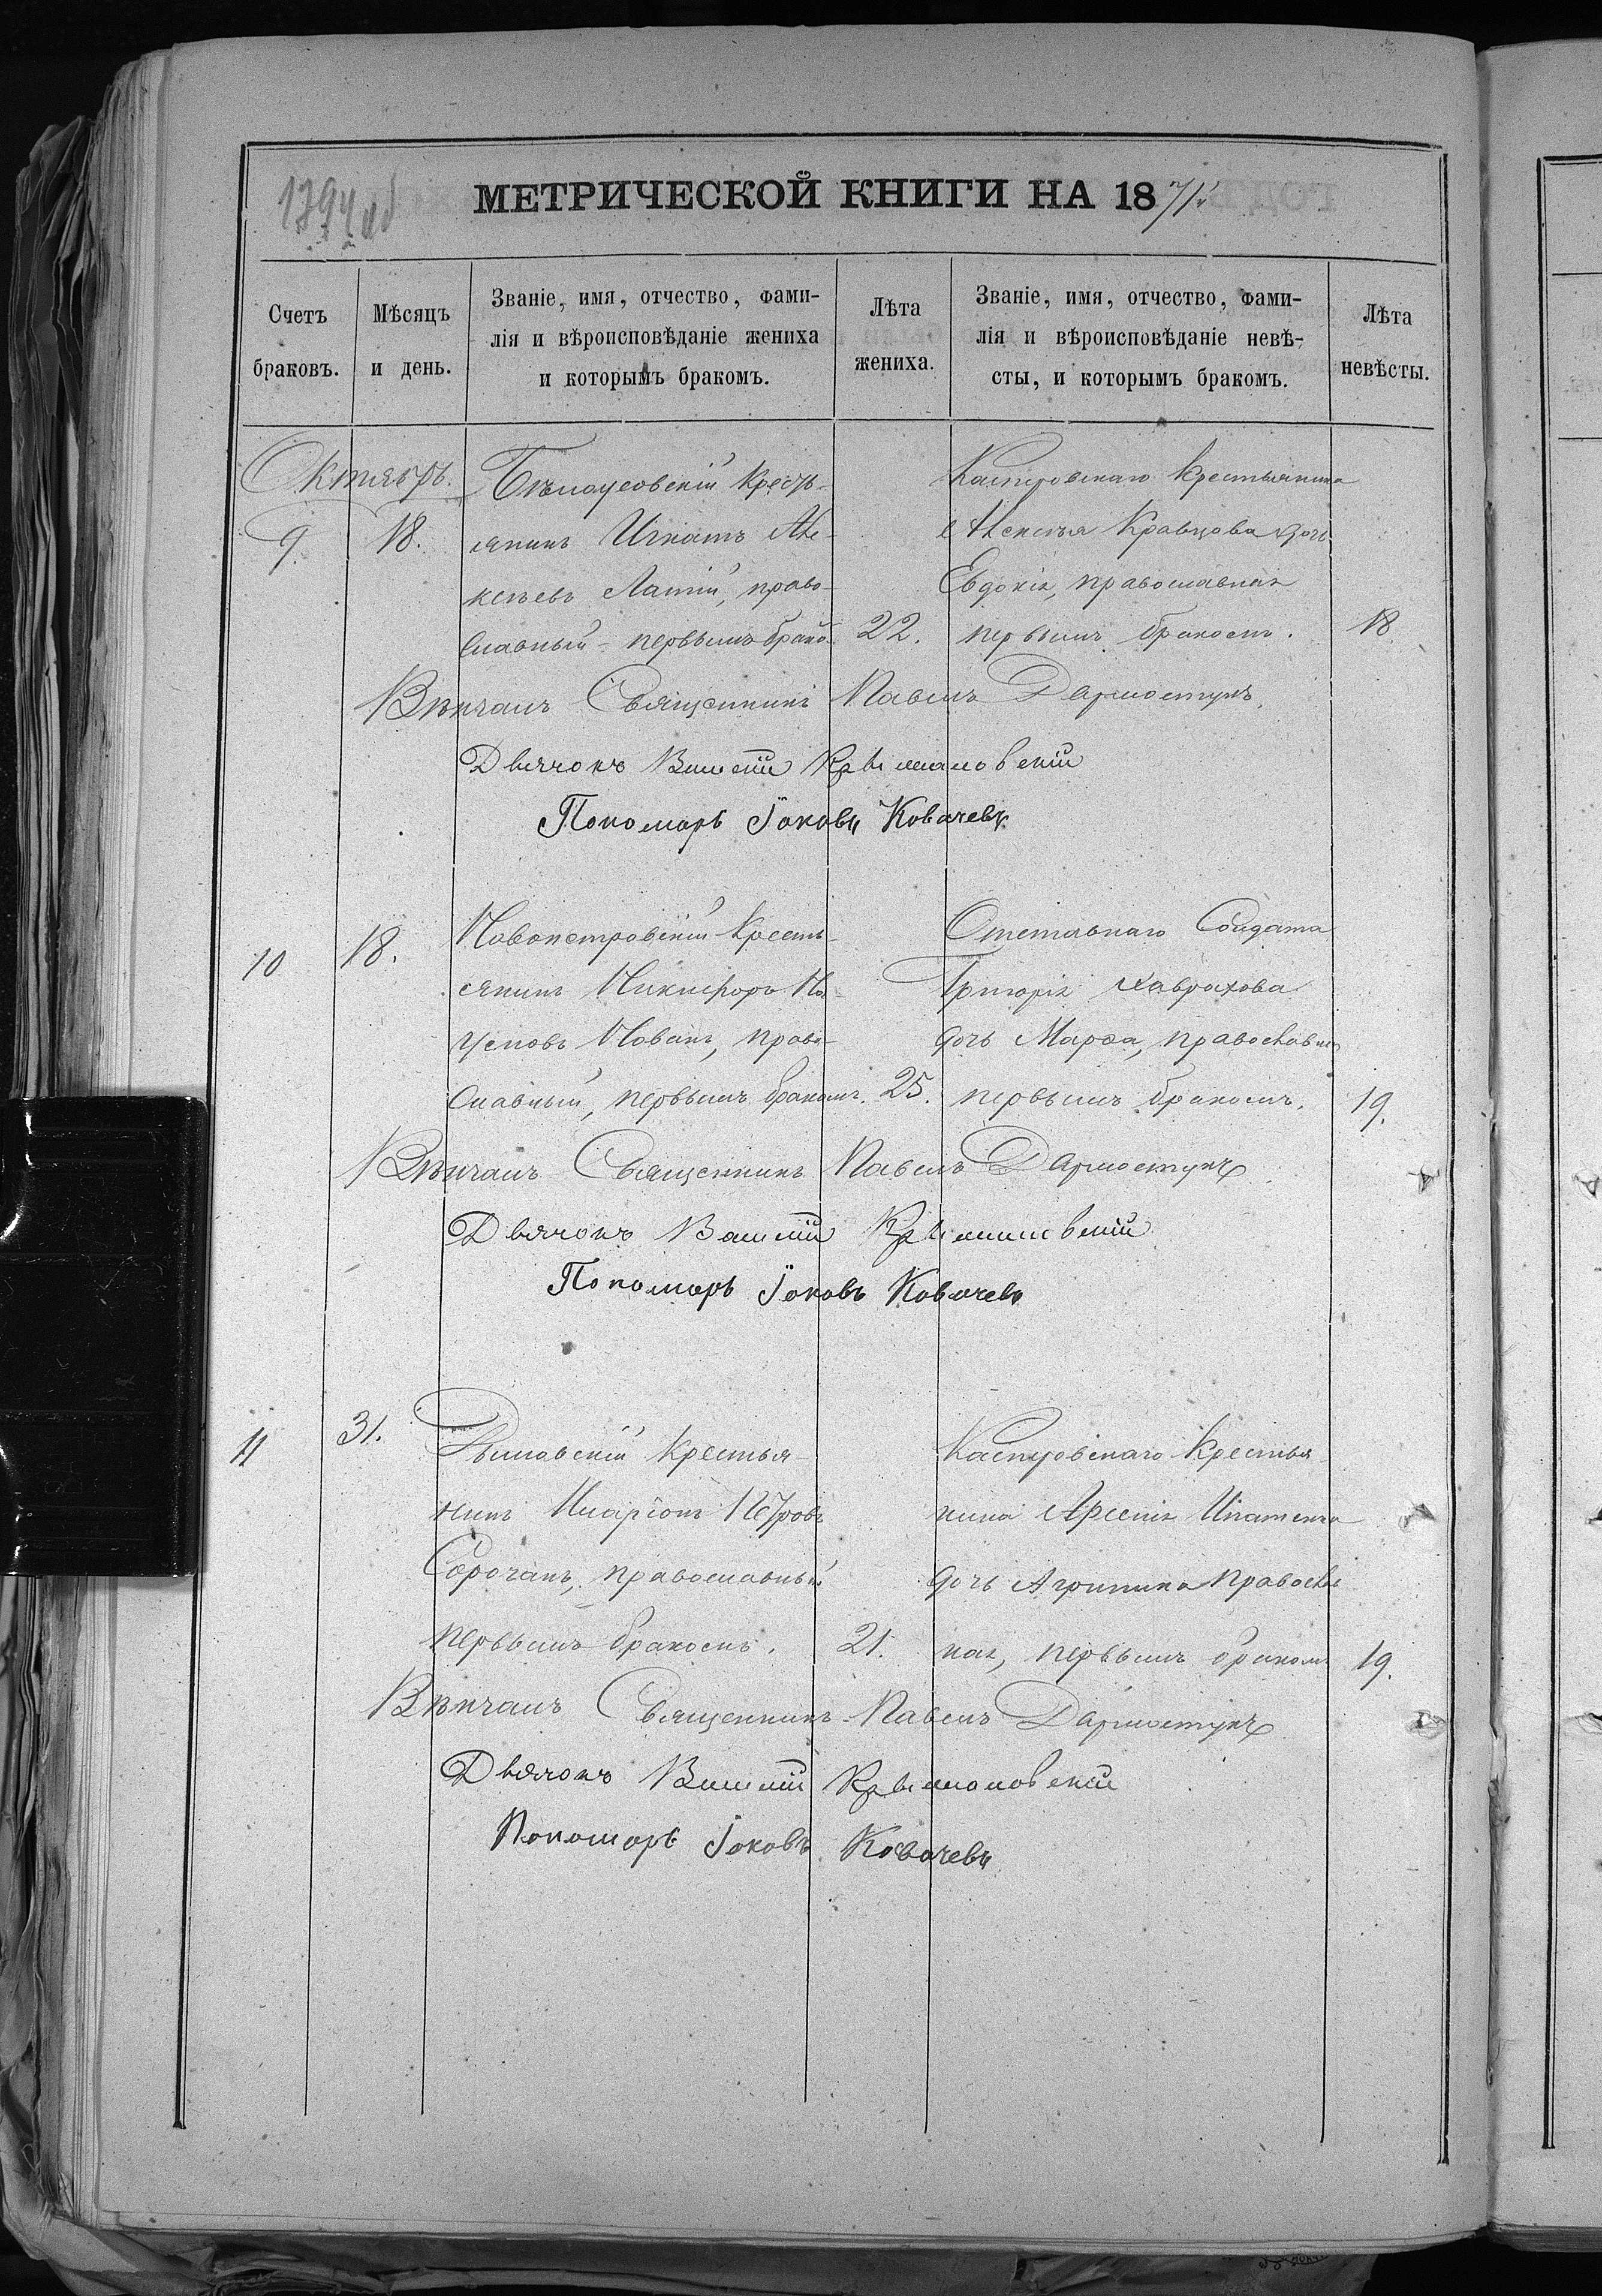 1794 об
МЕТРИЧЕСКОЙ КНИГИ НА 1871
Счетъ браковъ.
Мѣсяцъ и день.
Званіе, имя, отчество, фами-
лія и вѣроисповѣданіе жениха
и которымъ бракомъ.
Лѣта жениха.
Званіе, имя, отчество, фами-
лія и вѣроисповѣданіе невѣ-
сты, и которымъ бракомъ.
Лѣта невѣсты.
Октябрь.
9.
18.
Бѣлоусовскій Кресть-
янинъ Игнатъ Але-
ксѣевъ Латій, право-
славный первымъ брако
22.
Касперовскаго Крестьянина
Алексѣя Кравцова дочь
Евдокія, православная
первымъ бракомъ.
18
Вѣнчалъ Священникъ Павелъ Дармостукъ
Дьячокъ Василій Крыжановскій
Пономарь Іаковъ Ковачевъ
10
18.
Новопетровскій Кресть-
янинъ Никифоръ На-
умовъ Новакъ, право-
славный, первымъ бракомъ.
25.
Отставнаго Солдата
Григорія
дочь Марѳа, православная
первымъ бракомъ.
19.
Вѣнчалъ Священникъ Павелъ Дармостукъ
Дьячокъ Василій Крыжановскій
Пономарь Іаковъ Ковачевъ
11
31.
Крестья-
нинъ Иларіонъ Петровъ
Сорочанъ, православный
первымъ бракомъ.
21.
Касперовскаго Крестья
нина Арсенія Игнатенка
дочь Агрипина Правосла
ная, первымъ бракомъ
19.
Вѣнчалъ Священникъ Павелъ Дармостукъ
Дьячокъ Василій Крыжановскій
Пономарь Іаковъ Ковачевъ